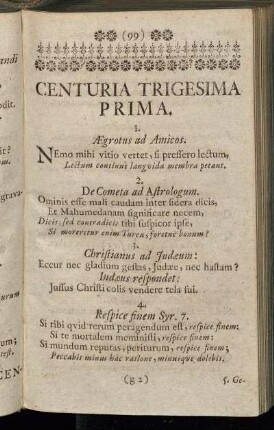 (99)
CENTURIA TRIGESIMA
PRIMA.
1.
Ægrotus ad Amicos.
NEmo mihi vitio vertet, si pressero lectum,
Lectum continuò languida membra petant.
2.
De Cometa ad Astrologum.
Ominis esse mali caudam inter sidera dicis,
Et Mahumedanam significare necem,
Dicis; sed contradicis tibi suspicor ipse,
Si moreretur enim Turca, foretne bonum?
3.
Christianus ad Judæum:
Eccur nec gladium gestas, Judæe, nec hastam?
Iudæus respondet:
Jussus Christicolis vendere tela sui.
4.
Respice finem Syr. 7.
Si tibi quid rerum peragendum est, respice finem:
Si te mortalem meministi, respice finem:
Si mundum reputas, periturum, respice finem;
Peccabis minus hac ratione, minusque dolebis.
(g 2)
5. Ge-